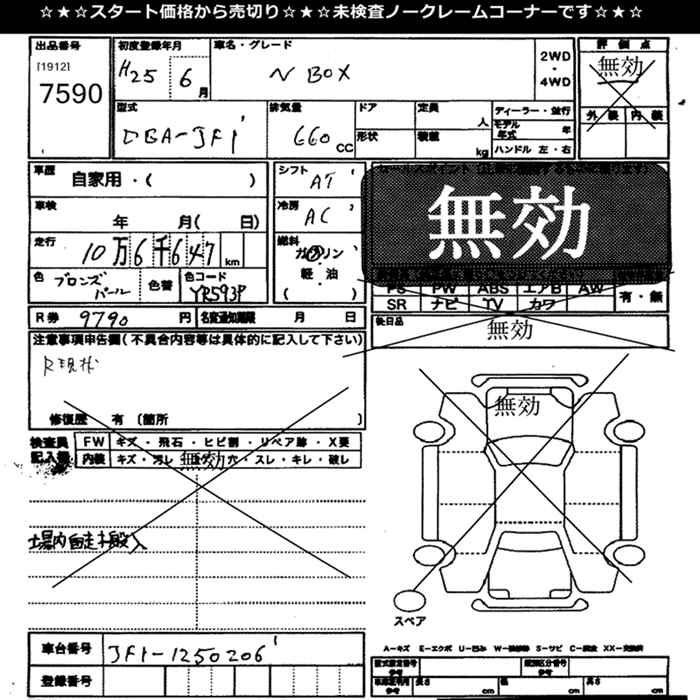 ☆★☆★スタート価格から売切り☆★☆★未検査ノークレームコーナーです☆★☆
出品番号
[1912]
7590
初度登録年月
H25 6月
車名・グレード
N BOX
2WD
・
4WD
評価点
無効
外装 内装
型式
DBA-JF1
排気量
660 CC
ドア
形状
定員 人
積載 kg
ディーラー・並行
モデル年式 年
ハンドル 左・右
車歴
自家用・( )
車検
年 月( 日)
走行
10万6千647 km
色 ブロンズパール
色替
色コード YR593P
シフト
AT
冷房
AC
燃料
ガソリン
・
軽・油
( )
無効
PS PW ABS エアB AW
SR ナビ TV カワ
有・無
R券 9790 円
名変通知期限 月 日
後日品
無効
注意事項申告欄(不具合内容等は具体的に記入して下さい)
R現状
修復歴 有 〔箇所 〕
検査員記入欄
FW キズ・飛石・ヒビ割・リペア跡・X要
内装 キズ・汚レ 穴・スレ・キレ・破レ
無効
場内自走本搬入
無効
スペア
車台番号 JF1-1250206
登録番号
A-キズ E-エクボ U-凹み
S-サビ
長さ cm
幅 cm
高さ cm